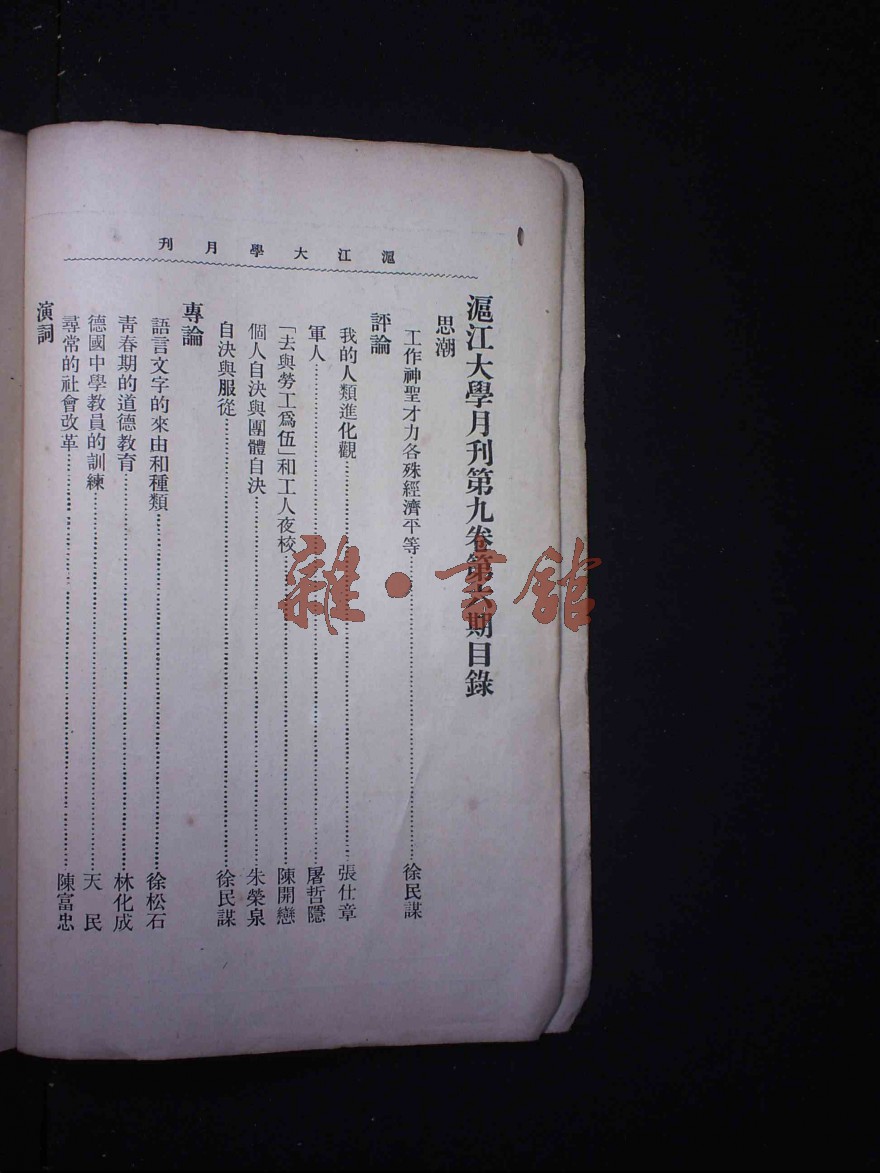 滬江大學月刊
滬江大學月刊第九卷第六期目錄
思潮
工作神聖才力各殊經濟平等……徐民謀
評論
我的人類進化觀……張仕章
軍人……屠哲隱
「去與勞工爲伍」和工人夜校……陳開懋
個人自決與團體自決……朱榮泉
自決與服從……徐民謀
專論
語言文字的來由和種類……徐松石
靑春期的道德教育……林化成
德國中學教員的訓練……天民
尋常的社會改革……陳富忠
演詞
雜·書館